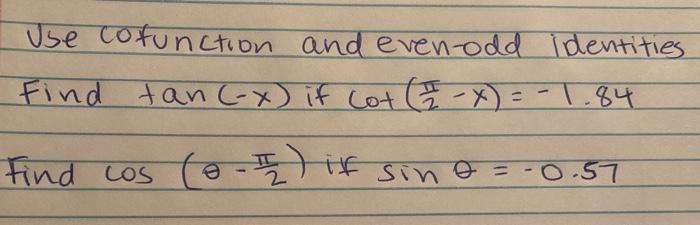 Use cofunction and even-odd identities
Find tan(-x) if cot(π/2 - x) = -1.84
Find cos (θ - π/2) if sin θ = -0.57